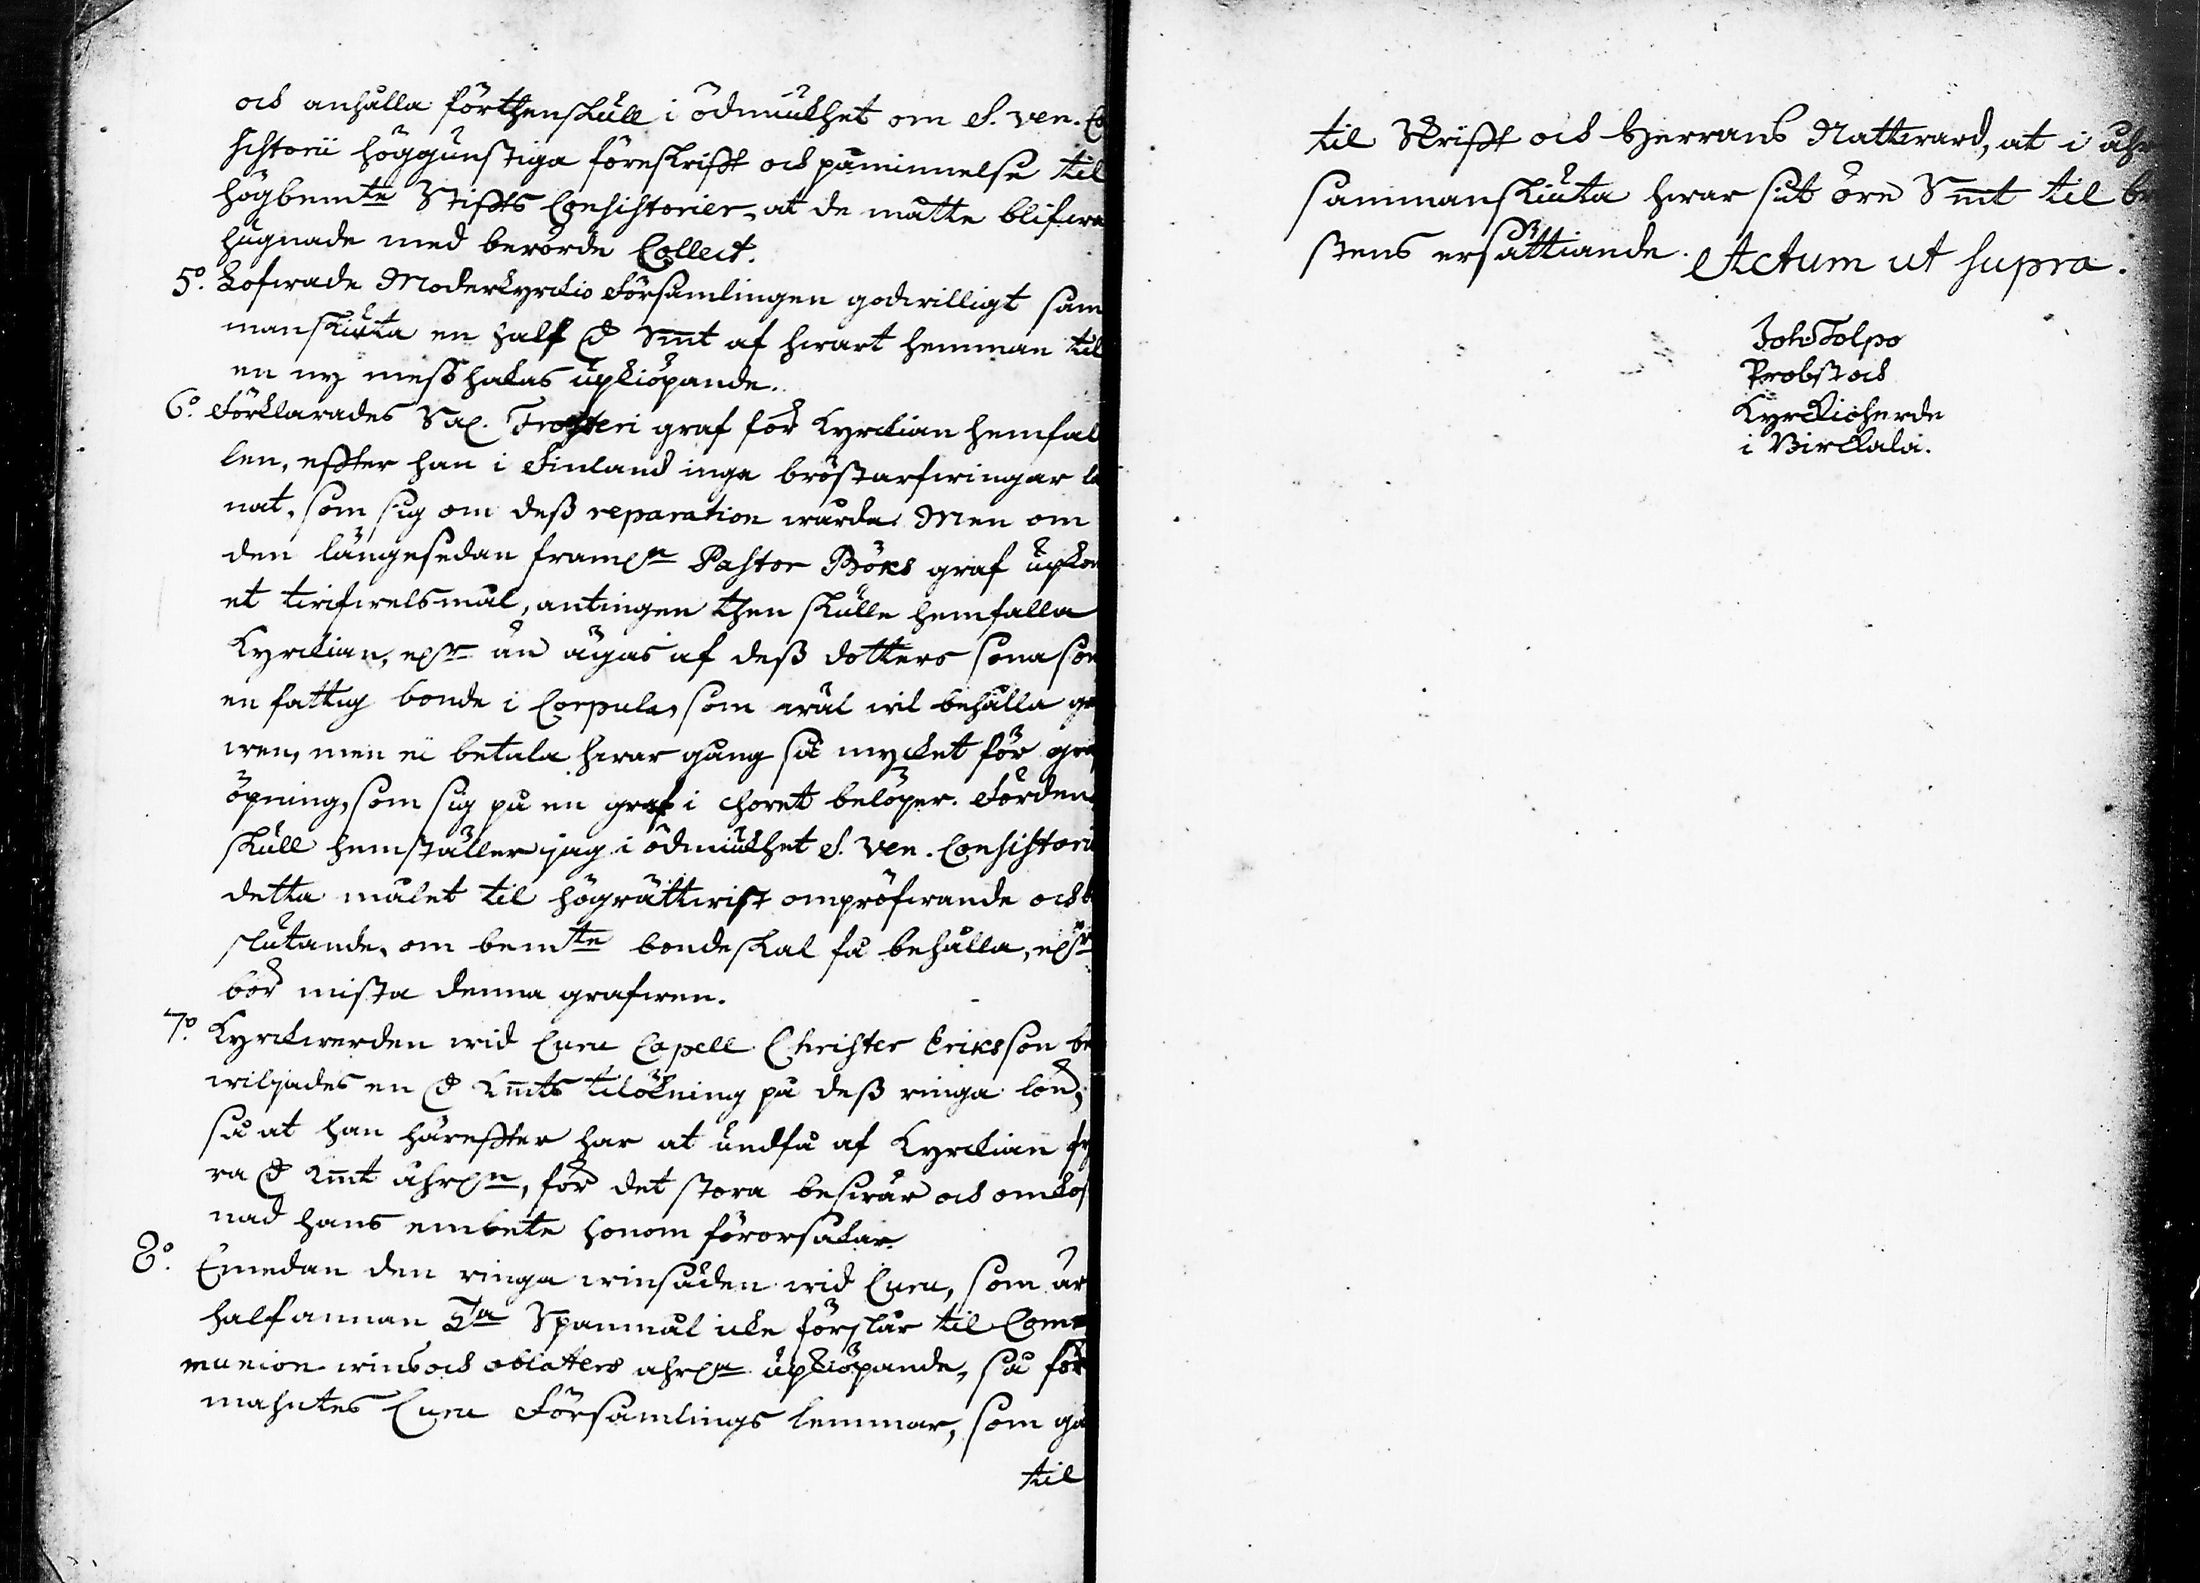 och anhålla förthenskull i ödmiukhet om S. ven. Co
sistorii höggunstiga föreskrifft och påminnelse til
högbemte Stiffts Consistorier, at de måtte blifwa
hugnade med berörde Collect.
5o. Lofwade Moderkyrckio Församlingen godwilligt sam
manskiuta en half D Smt af hwart hemman til
en ny messhakas upkiöpande.
6o. Förklarades Sal. Frosteri graf för Kyrckian hemfal
len, effter han i Finland inga bröstarfwingar le
nat, som sig om dess reparation wårda. Men om
den längesedan framln Pastor Böks graf upkom
et twifwelsmål, antingen then skulle hemfalla
Kyrckian, elr än ägas af dess dotters sona son
en fattig bonde i Corpula, som wäl wil behålla gra
wen, men ei betala hwar gång så mycket för graf
öpning, som sig på en graf i choret belöper. Fördens
skull hemställer jag i ödmiukhet S. Ven. Consistorii
detta målet til högrättwist ompröfwande och be
slutande, om bemte bonde skal få behålla, elr
bör mista denna grafwen.
7o. Kyrckwerden wid Curu Capell Christer Eriksson be
wiljades en D Kmts tilökning på dess ringa lön,
så at han häreffter har at undfå af Kyrckian fy
ra D Kmt åhrln, för det stora beswär och omkos
nad hans embete honom förorsakar
8o. Emedan den ringa winsäden wid Curu, som är
half annan Ta Spanmål icke förslår til Com
munion wins och oblaters åhrln upkiöpande, så för
mantes Curu Församlings lemmar, som gå
til
til Skrifft och Herrans Nattward, at i åhr
sammanskiuta hwar sit öre Smt til br
stens ersättiande. Actum ut supra.
Joh: Tolpo
Probst och
Kyrckioherde
i Birckala.